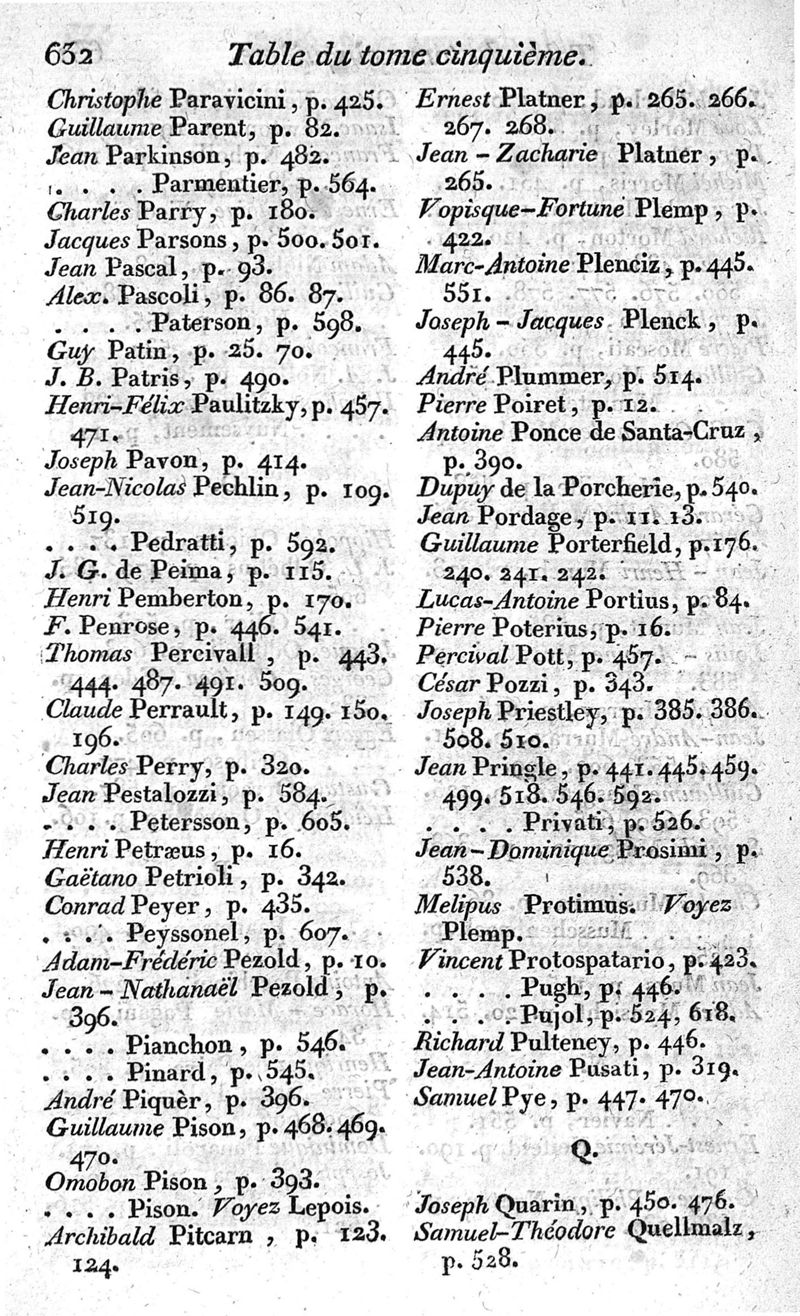 632 Table du tome cinquième.
Christophe Paravicini, p. 425.
Guillaume Parent, p. 82.
Jean Parkinson, p. 482.
. . . . Parmentier, p. 564.
Charles Parry, p. 180.
Jacques Parsons, p. 500. 501.
Jean Pascal, p. 93.
Alex. Pascoli, p. 86. 87.
. . . . Paterson, p. 598.
Guy Patin, p. 25. 70.
J. B. Patris, p. 490.
Henri-Félix Paulitzky, p. 457.
471.
Joseph Pavon, p. 414.
Jean-Nicolas Pechlin, p. 109.
519.
. . . . Pedratti, p. 592.
J. G. de Peima, p. 115.
Henri Pemberton, p. 170.
F. Penrose, p. 446. 541.
Thomas Percivall, p. 443.
444. 487. 491. 509.
Claude Perrault, p. 149. 150.
196.
Charles Perry, p. 320.
Jean Pestalozzi, p. 584.
. . . . Petersson, p. 605.
Henri Petræus, p. 16.
Gaëtano Petrioli, p. 342.
Conrad Peyer, p. 435.
. . . . Peyssonel, p. 607.
Adam-Frédéric Pezold, p. 10.
Jean-Nathanaël Pezold, p.
396.
. . . . Pianchon, p. 546.
. . . . Pinard, p. 545.
André Piquèr, p. 396.
Guillaume Pison, p. 468. 469.
470.
Omobon Pison, p. 393.
. . . . Pison. Voyez Lepois.
Archibald Pitcarn, p. 123.
124.
Ernest Platner, p. 265. 266.
267. 268.
Jean-Zacharie Platner, p.
265.
Vopisque-Fortuné Plemp, p.
422.
Marc-Antoine Plenciz, p. 445.
551.
Joseph-Jacques Plenck, p.
445.
André Plummer, p. 514.
Pierre Poiret, p. 12.
Antoine Ponce de Santa-Cruz,
p. 390.
Dupuy de la Porcherie, p. 540.
Jean Pordage, p. 11. 13.
Guillaume Porterfield, p. 176.
240. 241. 242.
Lucas-Antoine Portius, p. 84.
Pierre Poterius, p. 16.
Percival Pott, p. 457.
César Pozzi, p. 343.
Joseph Priestley, p. 385. 386.
508. 510.
Jean Pringle, p. 441. 445. 459.
499. 518. 546. 592.
. . . . Privati, p. 526.
Jean-Dominique Prosimi, p.
538.
Melipus Protimus. Voyez
Plemp.
Vincent Protospatario, p. 423.
. . . . Pugh, p. 446.
. . . . Pujol, p. 524, 618.
Richard Pulteney, p. 446.
Jean-Antoine Pusati, p. 319.
Samuel Pye, p. 447. 470.
Q.
Joseph Quarin, p. 450. 476.
Samuel-Théodore Quellmalz,
p. 528.